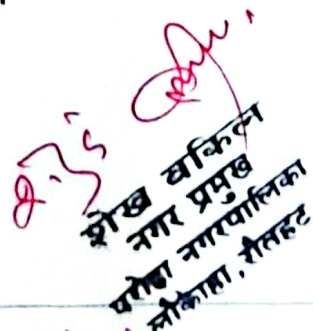 शेख वकिल
नगर प्रमुख
परोहा नगरपालिका
लौकाहा, रौतहट